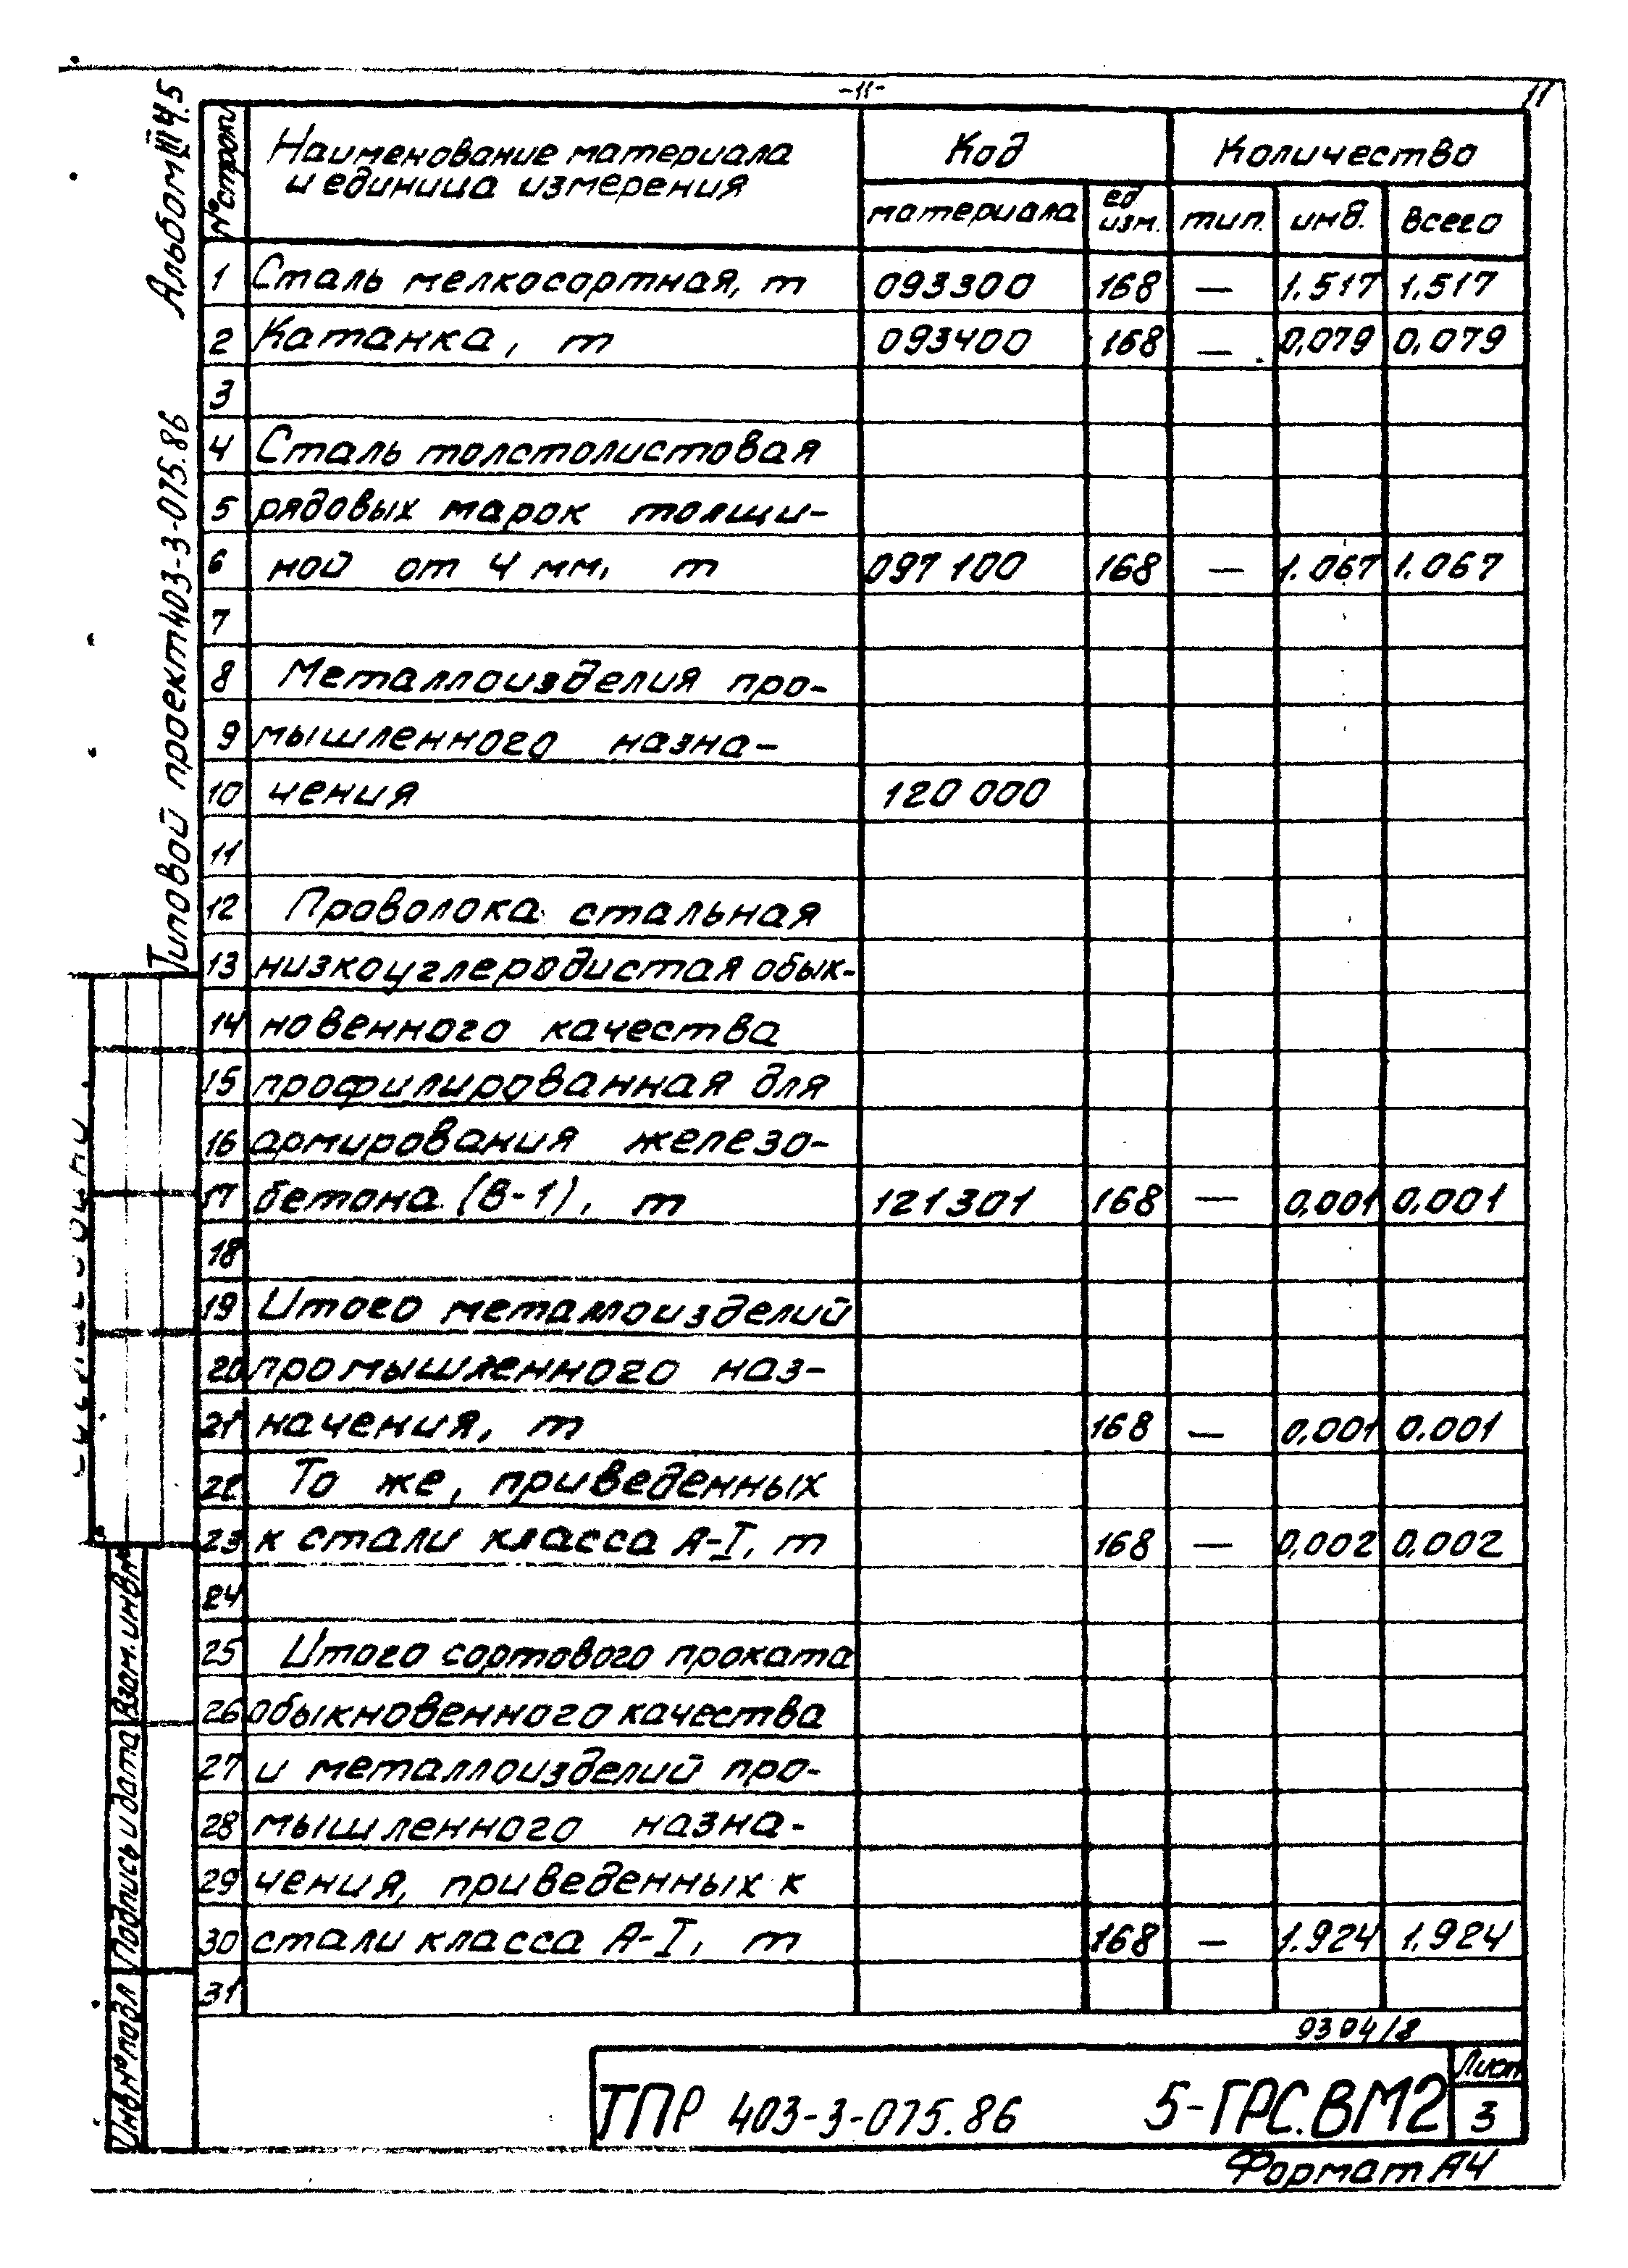 -11-
11
Альбом III ч.5
Типовой проект 403-3-075.86
№ строки
Наименование материала
и единица измерения
Код
Количество
материала
ед
изм.
тип.
инд.
всего
1 Сталь мелкосортная, т 093300 168 — 1.517 1.517
2 Катанка, т 093400 168 — 0,079 0,079
3
4 Сталь толстолистовая
5 рядовых марок толщи-
6 ной от 4 мм, т 097 100 168 — 1.067 1.067
7
8 Металлоизделия про-
9 мышленного назна-
10 чения 120 000
11
12 Проволока стальная
13 низкоуглеродистая обык-
14 новенного качества
15 профилированная для
16 армирования железо-
17 бетона (В-1), т 121301 168 — 0,001 0.001
18
19 Итого металлоизделий
20 промышленного наз-
21 начения, т 168 — 0,001 0.001
22 То же, приведенных
23 к стали класса А-I, т 168 — 0,002 0,002
24
25 Итого сортового проката
26 обыкновенного качества
27 и металлоизделий про-
28 мышленного назна-
29 чения, приведенных к
30 стали класса А-I, т 168 — 1.924 1.924
31
Взам. инв №
Подпись и дата
Инв № подл
9304/8
ТПР 403-3-075.86 5-ГРС.ВМ2
Лист
3
Формат А4